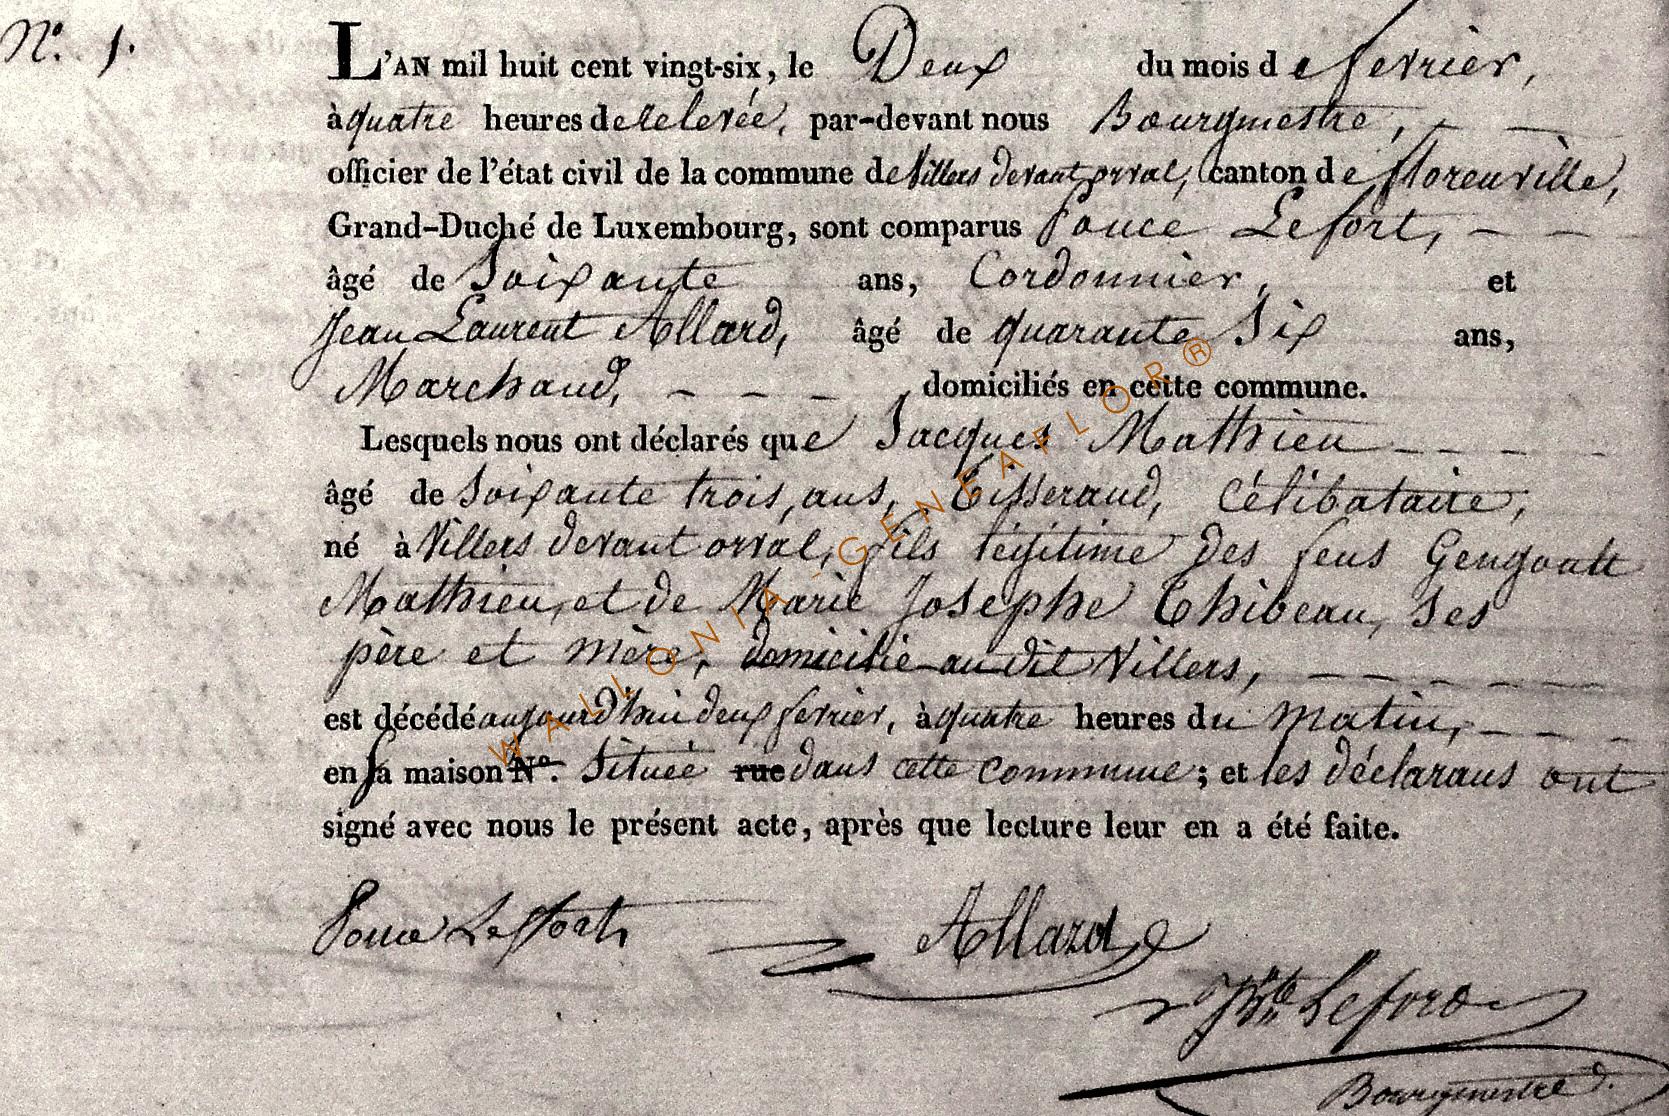 N.º 1.
L'AN mil huit cent vingt-six, le Deux du mois de fevrier,
à quatre heures de relevée, par-devant nous Bourgmestre,
officier de l'état civil de la commune de Villers devant orval, canton de florenville,
Grand-Duché de Luxembourg, sont comparus Poncé Lefort,
âgé de Soixante ans, Cordonnier, et
Jean Laurent Allard, âgé de quarante Six ans,
Marchand, domiciliés en cette commune.
Lesquels nous ont déclarés que Jacques Mathieu
âgé de Soixante trois, ans, Tisserand, Célibataire,
né à Villers devant orval, fils légitime des feus Gengoult
Mathieu, et de Marie Josephe Thibeau, ses
père et mère, domicilié au dit Villers,
est décédé aujourd'hui deux fevrier, à quatre heures du matin,
en sa maison Nº. Située rue dans cette commune; et les déclarans ont
signé avec nous le présent acte, après que lecture leur en a été faite.
Ponce Leffort Allard
Bte Lefort
Bourgmestre
WALLONIA-GENEAFLOR®